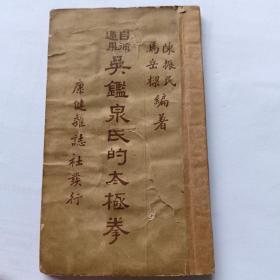 陳振民
馬岳樑
編著
自修
適用
吳鑑泉氏的太極拳
康健雜誌社發行